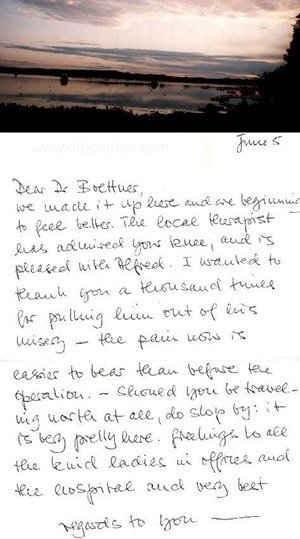 www.drboettner.com
June 5
Dear Dr Boettner,
we made it up here and are beginning
to feel better. The local therapist
has admired your knee, and is
pleased with Alfred. I wanted to
thank you a thousand times
for pulling him out of his
misery – the pain now is
easier to bear than before the
operation. – Should you be travel-
ing north at all, do stop by: it
is very pretty here. Greetings to all
the kind ladies in offices and
the hospital and very best
regards to you —